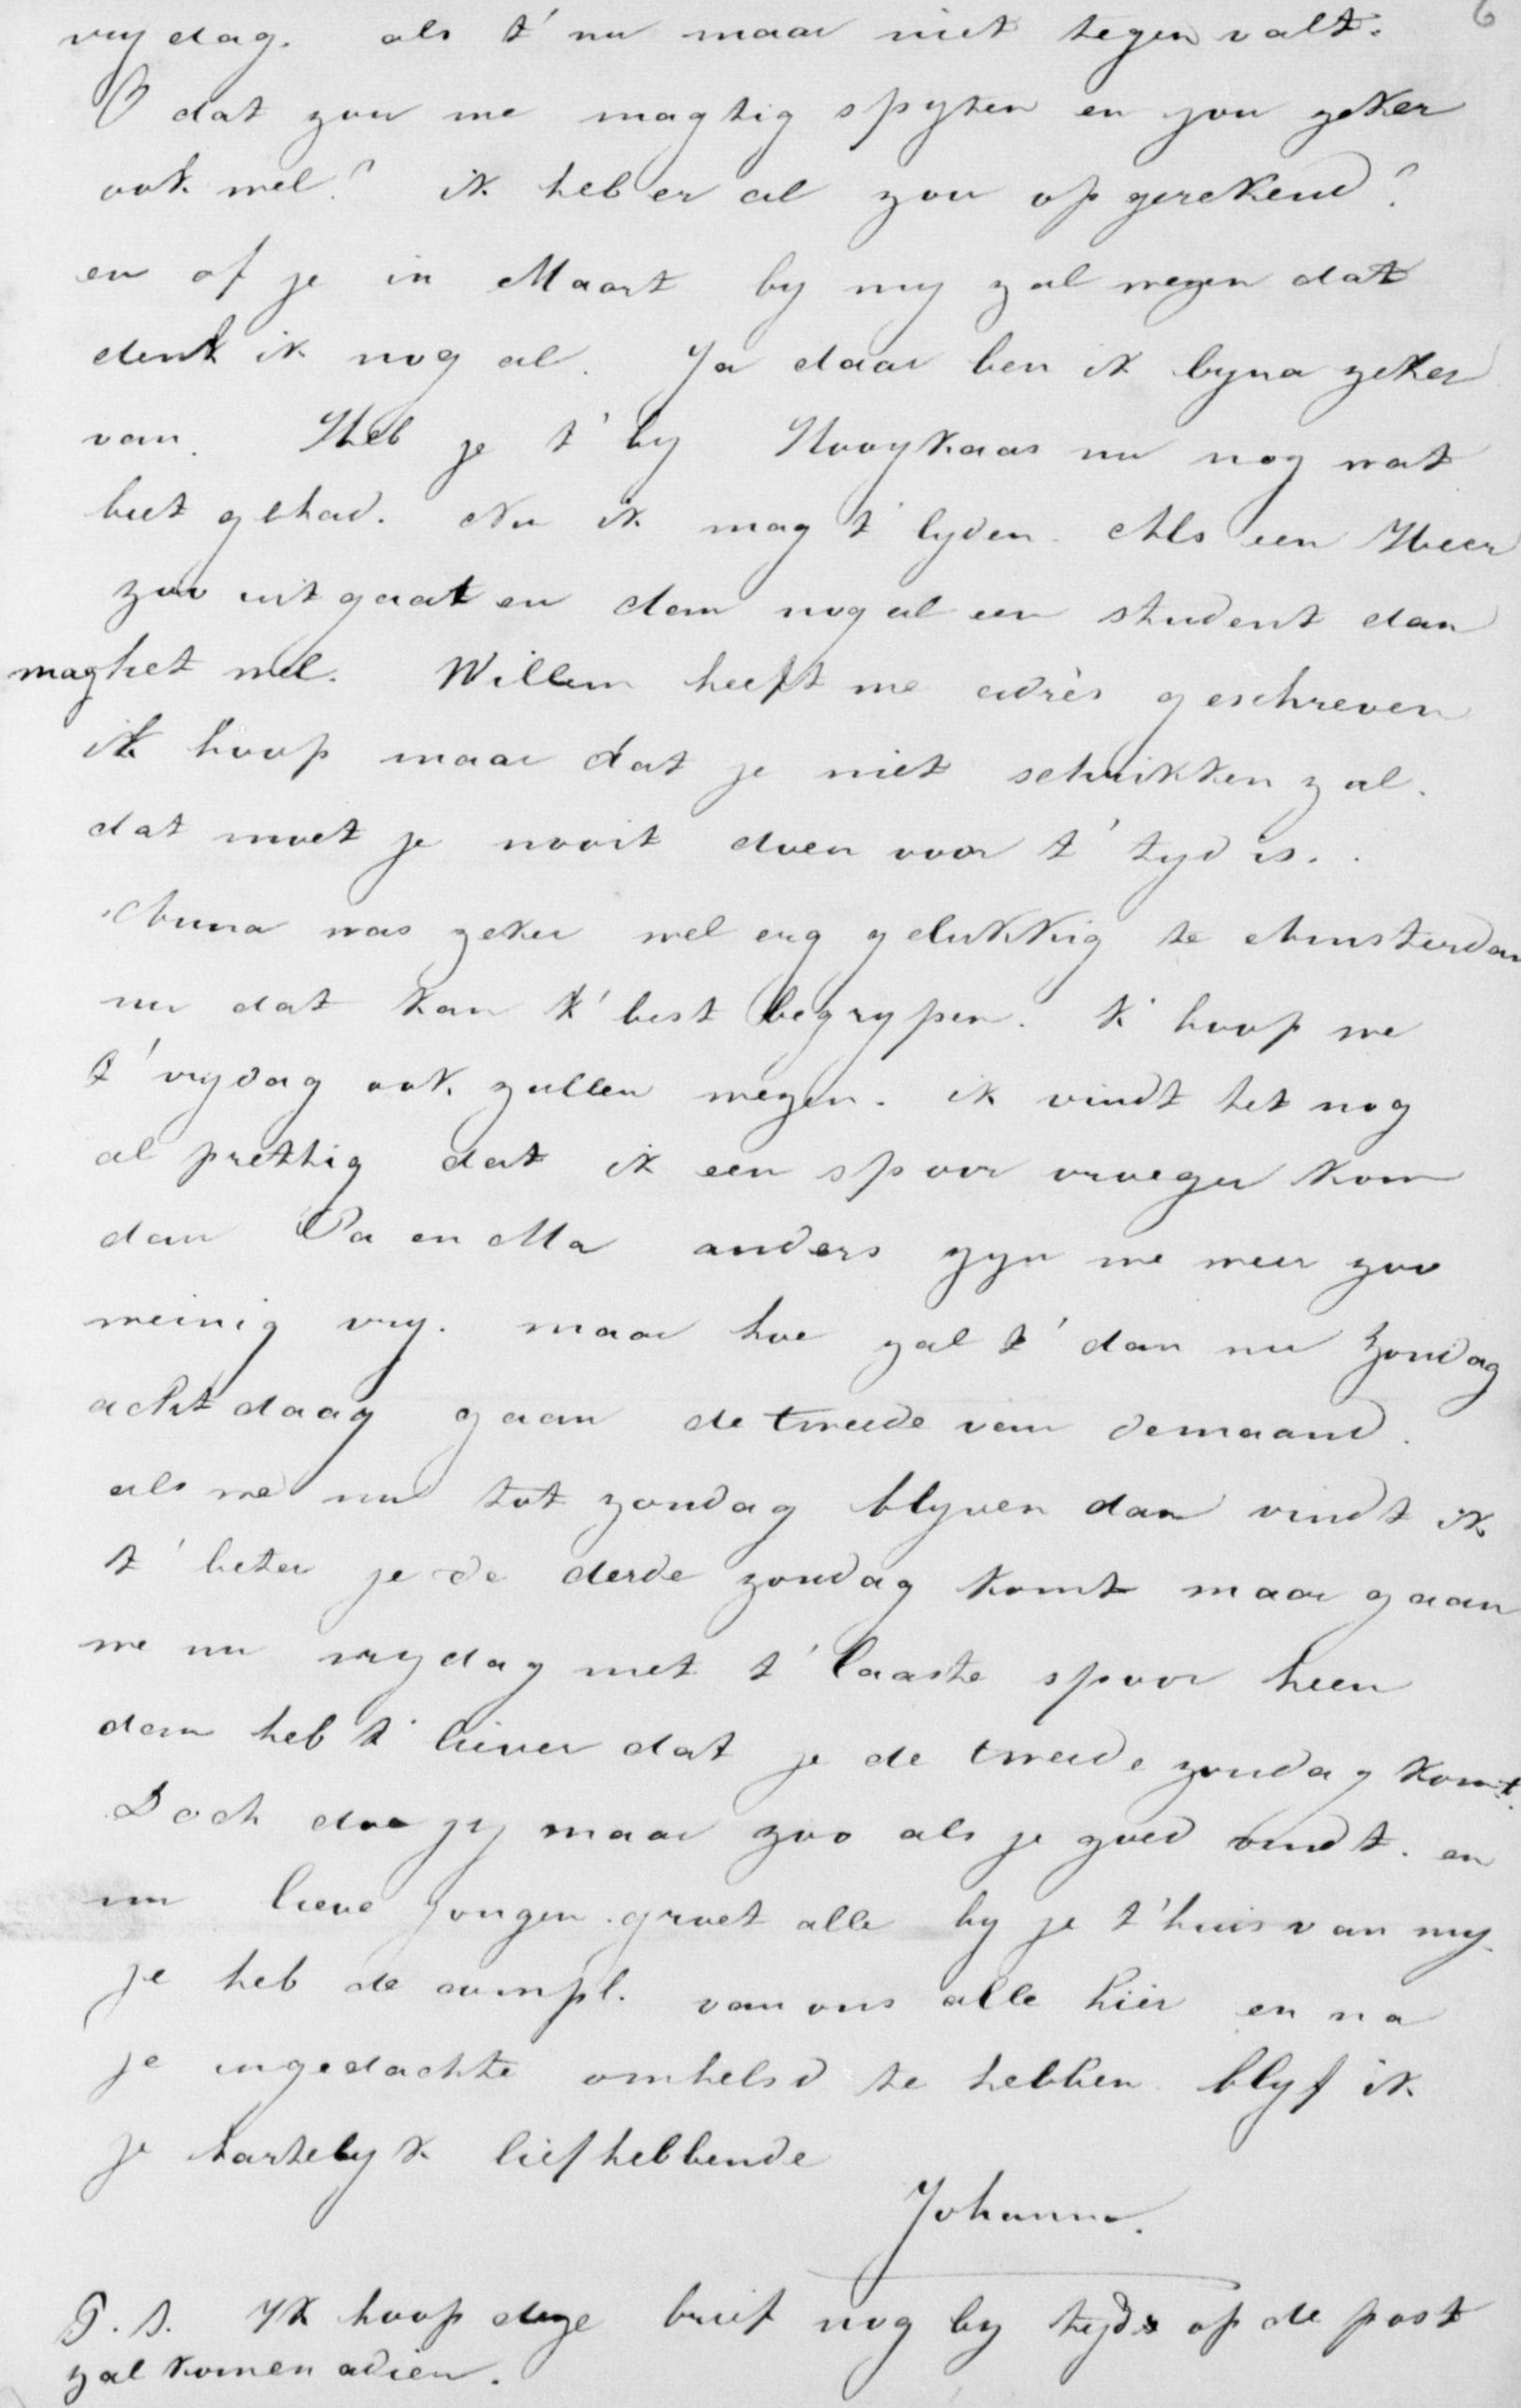 6
vrydag. als t' nu maar niet tegen valt.
O dat zou me magtig spyten en jou zeker
ook wel? ik heb er al zoo op gerekend?
en of je in Maart by my zal wezen dat
denk ik nog al. Ja daar ben ik byna zeker
van. Heb je t' by Hooykaas nu nog wat
beet gehad. Nu ik mag t' lyden. Als een Heer
zoo uit gaat en dan nog al een student dan
mag het wel. Willem heeft me adrès geschreven
ik hoop maar dat je niet schrikken zal.
dat moet je nooit doen voor t' tyd is.
Anna was zeker wel erg gelukkig te Amsterdam
nu dat kan k' best begrypen. k' hoop we
t' vrydag ook zullen wezen. ik vindt het nog
al prettig dat ik een spoor vroeger kom
dan Pa en Ma anders zyn we weer zoo
weinig vry. maar hoe zal t' dan nu Zondag
acht daag gaan de tweede van de maand.
als we nu tot zondag blyven dan vindt ik
t' beter je de derde zondag komt maar gaan
we nu vrydag met t' laaste spoor heen
dan heb k' liever dat je de tweede zondag komt.
Doch doe jy maar zoo als je goed vindt. en
nu lieve Jongen. groet alle by je t'huis van my.
je heb de compl. van ons alle hier en na
je in gedachte omhelsd te hebben blyf ik
je hartelyk liefhebbende
Johanna.
P.S. Ik hoop deze brief nog by tyds op de post
zal komen adieu.